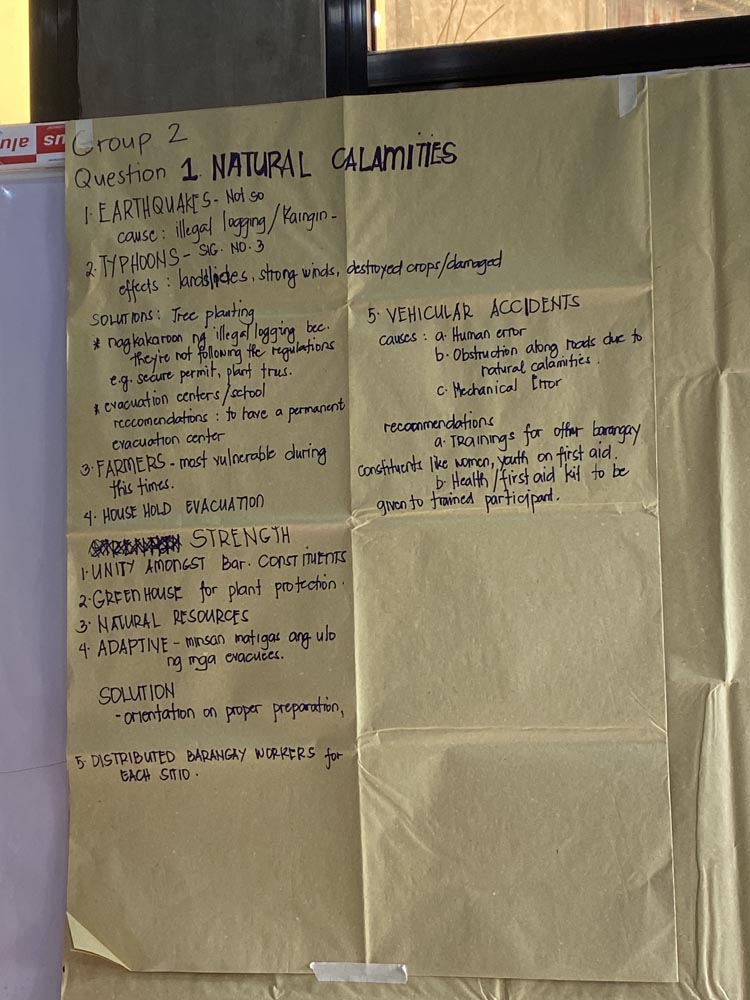 Group 2
Question 1. NATURAL CALAMITIES
1. EARTHQUAKES - Not so
cause: illegal logging/Kaingin -
2. TYPHOONS - SIG. NO. 3
effects: landslides, strong winds, destroyed crops/damaged
SOLUTIONS: Tree planting
* nagkakaroon ng illegal logging bec.
they're not following the regulations
e.g. secure permit, plant trus.
* evacuation centers/school
reccomendations: to have a permanent
evacuation center
3. FARMERS - most vulnerable during
this times.
4. HOUSE HOLD EVACUATION
STRENGTH
1. UNITY AMONGST Bar. CONSTITUENTS
2. GREENHOUSE for plant protection.
3. NATURAL RESOURCES
4. ADAPTIVE - minsan matigas ang ulo
ng mga evacuees.
SOLUTION
- orientation on proper preparation,
5. DISTRIBUTED BARANGAY WORKERS for
EACH SITIO.
5. VEHICULAR ACCIDENTS
causes: a. Human error
b. Obstruction along roads due to
natural calamities.
c. Mechanical Error
recommendations
a. Trainings for other barangay
constituents like women, youth on first aid.
b. Health/first aid kit to be
given to trained participant.